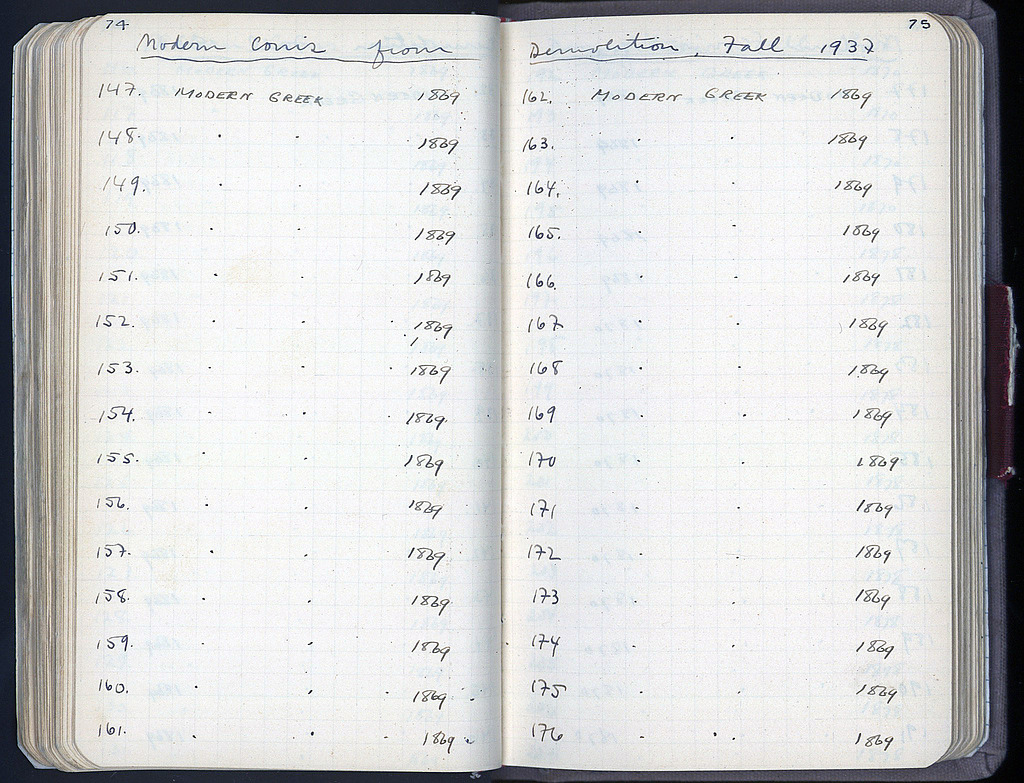 74
Modern Coins from
147. MODERN GREEK 1869
148. " " 1869
149. " " 1869
150. " " 1869
151. " " 1869
152. " " 1869
153. " " 1869
154. " " 1869
155. " " 1869
156. " " 1869
157. " " 1869
158. " " 1869
159. " " 1869
160. " " 1869
161. " " 1869
75
Demolition, Fall 1937
162. MODERN GREEK 1869
163. " " 1869
164. " " 1869
165. " " 1869
166. " " 1869
167 " " 1869
168 " " 1869
169 " " 1869
170 " " 1869
171 " " 1869
172 " " 1869
173 " " 1869
174 " " 1869
175 " " 1869
176 " " 1869